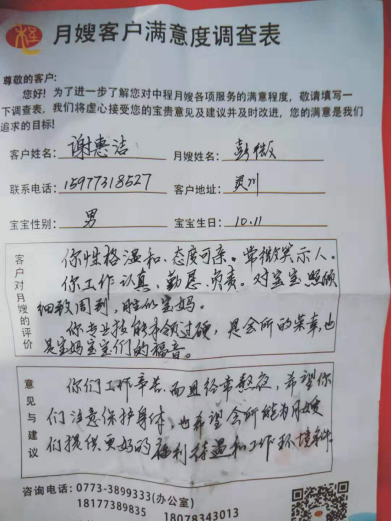 月嫂客户满意度调查表
尊敬的客户:
您好!为了进一步了解您对中程月嫂各项服务的满意程度,敬请填写一
下调查表,我们将虚心接受您的宝贵意见及建议并及时改进,您的满意是我们
追求的目标!
客户姓名: 谢惠洁 月嫂姓名: 彭微
联系电话: 15977318527 客户地址: 灵川
宝宝性别: 男 宝宝生日: 10.11
客户对月嫂的评价
你性格温和、态度可亲。常微笑示人。
你工作认真、勤恳、负责。对宝宝照顾
细致周到,胜似宝妈。
你专业技能本领过硬,是会所的荣幸,也
是宝妈宝宝们的福音。
意见与建议
你们工作辛苦而且经常熬夜,希望你
们注意保护身体,也希望会所能为月嫂
们提供更好的福利待遇和工作环境条件
咨询电话:0773-3899333(办公室)
18177389835 18078343013